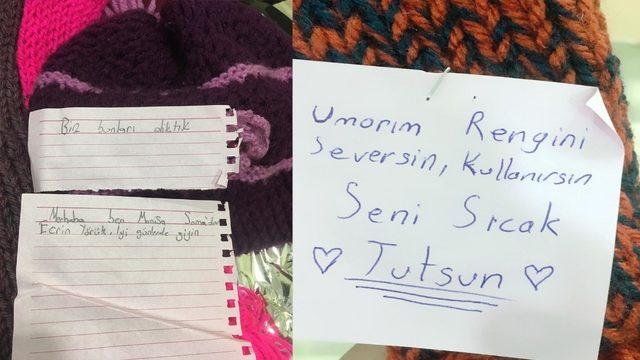 Biz bunları diktik
Merhaba ben Manisa Soma'dan
Ecrin Yörük. İyi günlerde giyin
Umarım Rengini
Seversin, Kullanırsın
Seni Sıcak
♡ Tutsun ♡